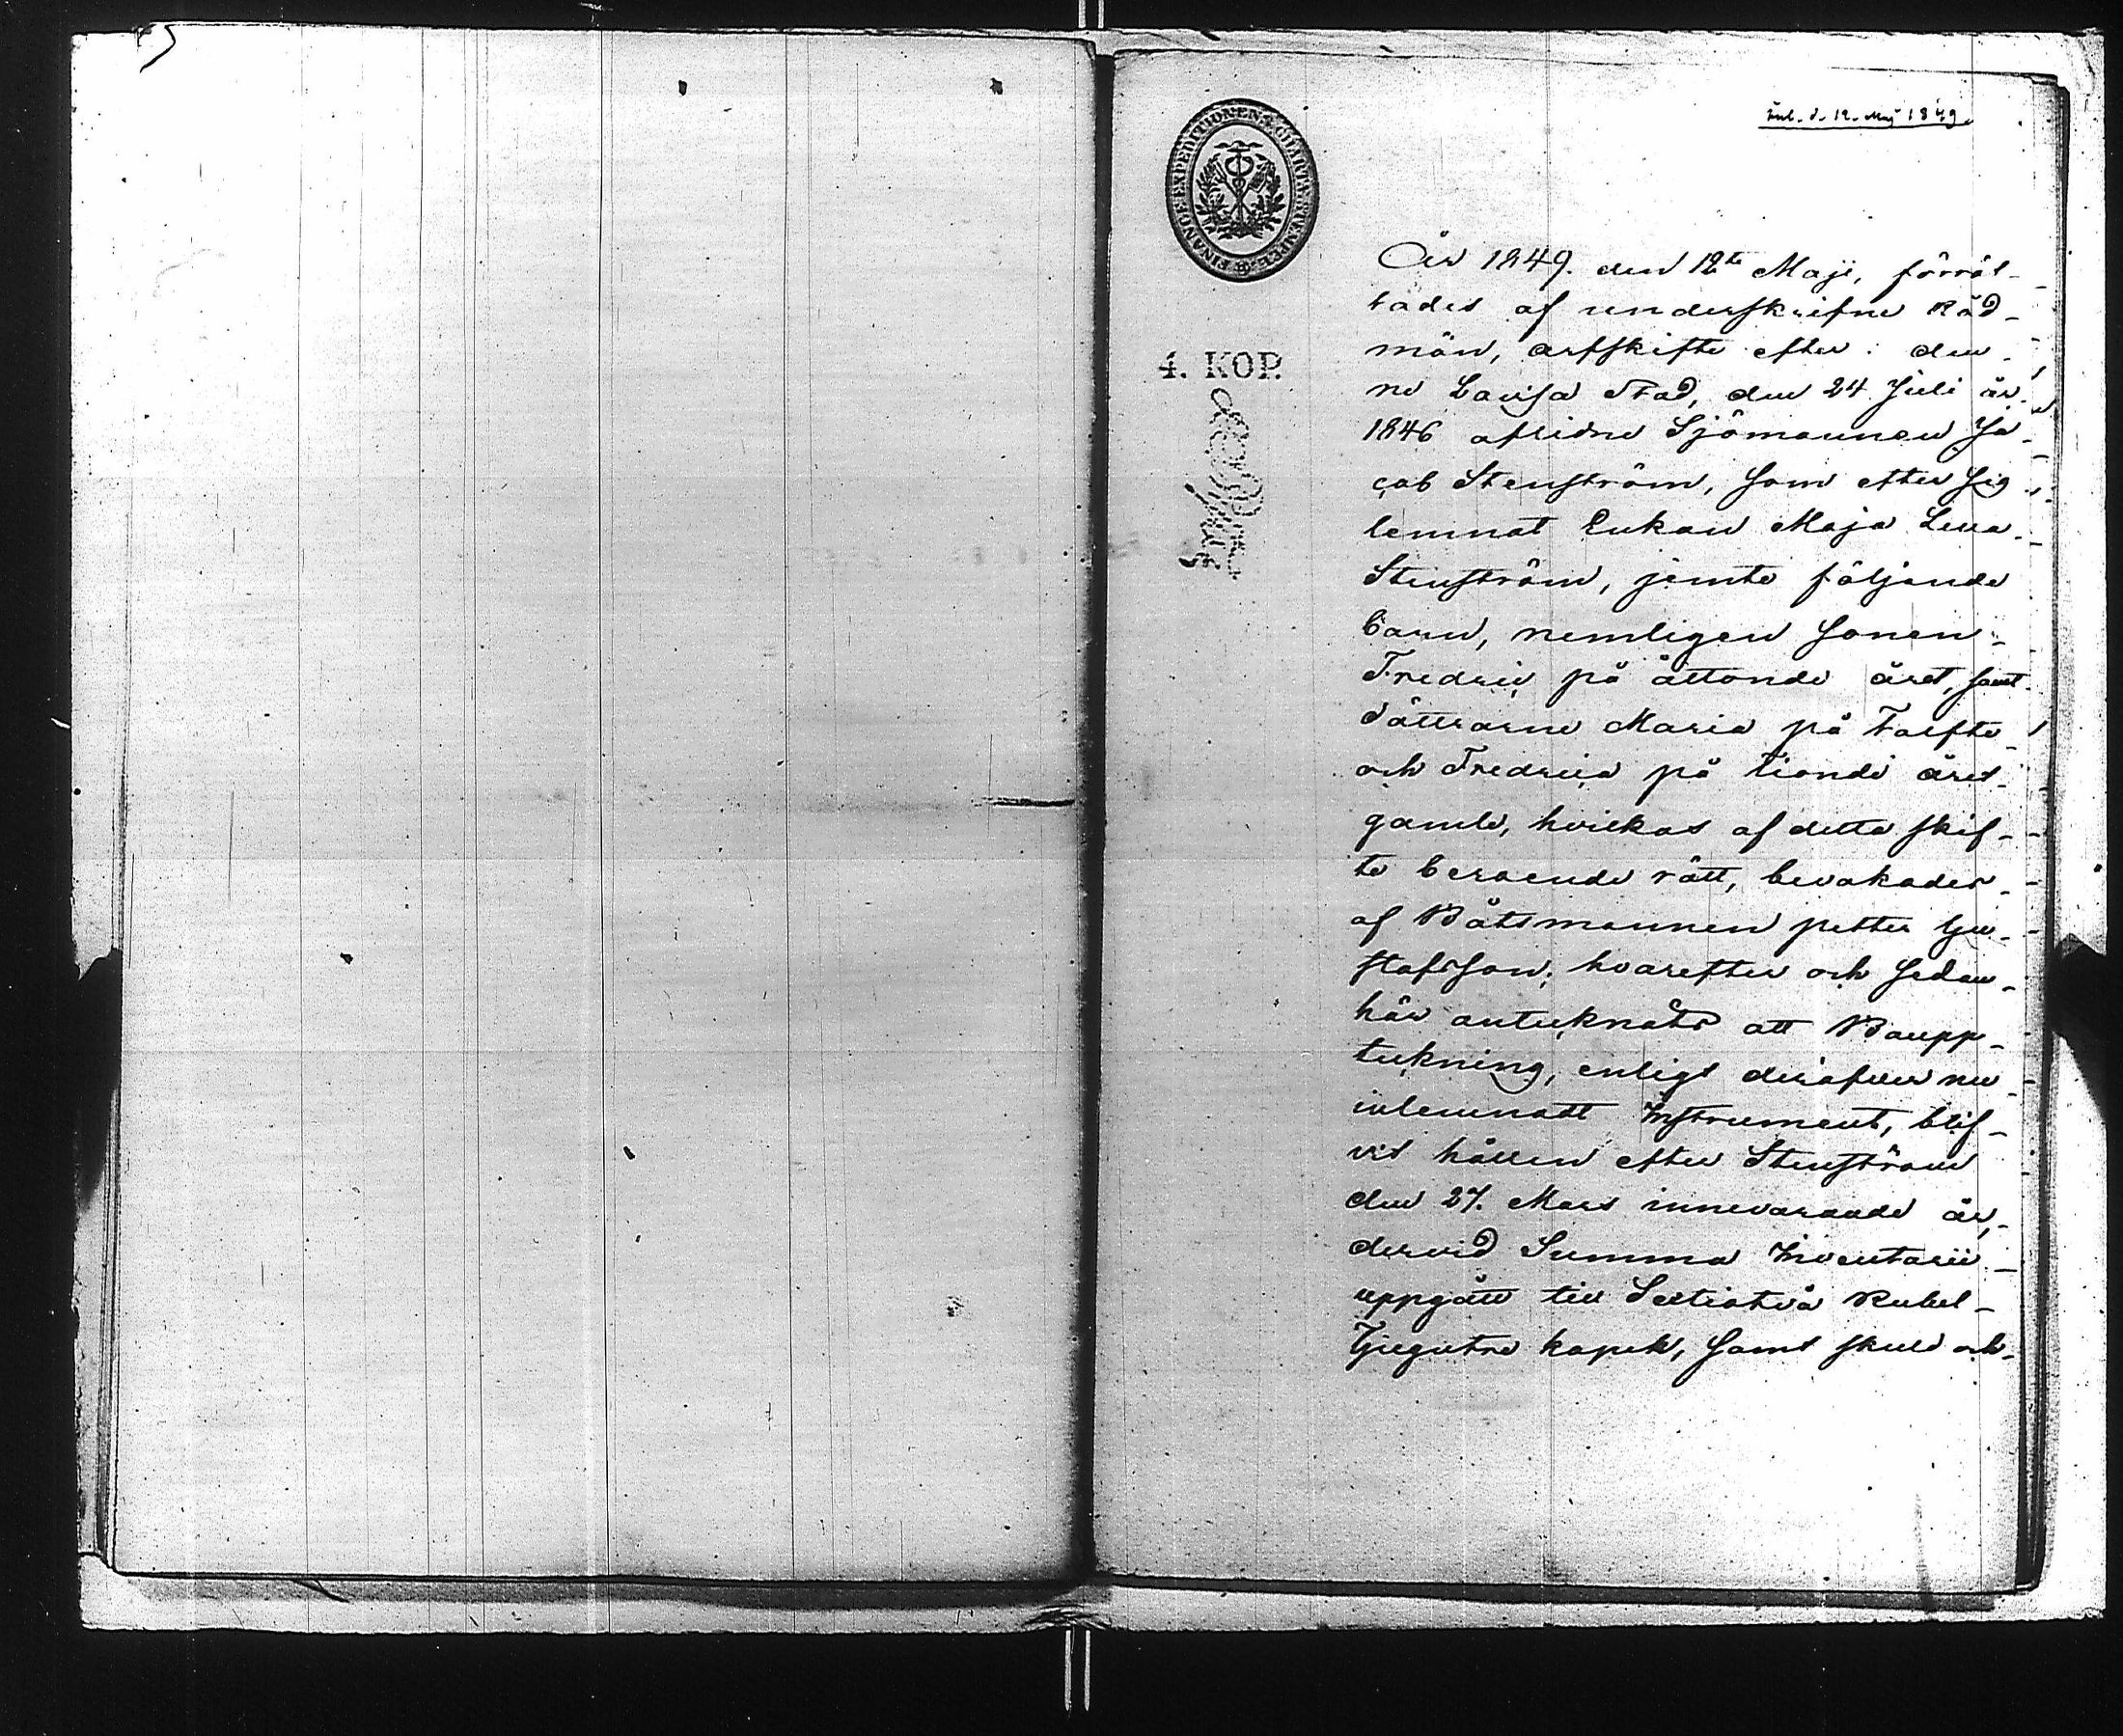 Inl. d. 12. Maj 1849.
FINANCE EXPEDITIONEN CHARTÆ
4. KOP.
År 1849. den 12te Maji, förrät-
tades af underskrifne Råd-
män, arfskifte efter: den-
ne Lovisa Stad, den 24 Juli år
1846 aflidne Sjömannen Ja-
cob Stenström, som efter sig
lemnat Enkan Maja Lena
Stenström, jemte följande
barn, nemligen sonen
Fredric på åttonde året, samt
döttrarne Maria på Tolfte
och Fredrica på tionde året
gamle, hvilkas af detta skif-
te beroende rätt, bevakades
af Båtsmannen petter Gu-
stafsson; hvarefter och sedan
här antecknats att Boupp-
teckning, enligt deröfver nu
inlemnadt Instrument, blif-
vit hållen efter Stenström
den 27. Mars innevarande år,
dervid Summa Inventarii
uppgått till Sextiotvå Rubel
Tjugutre kopek, samt skuld och